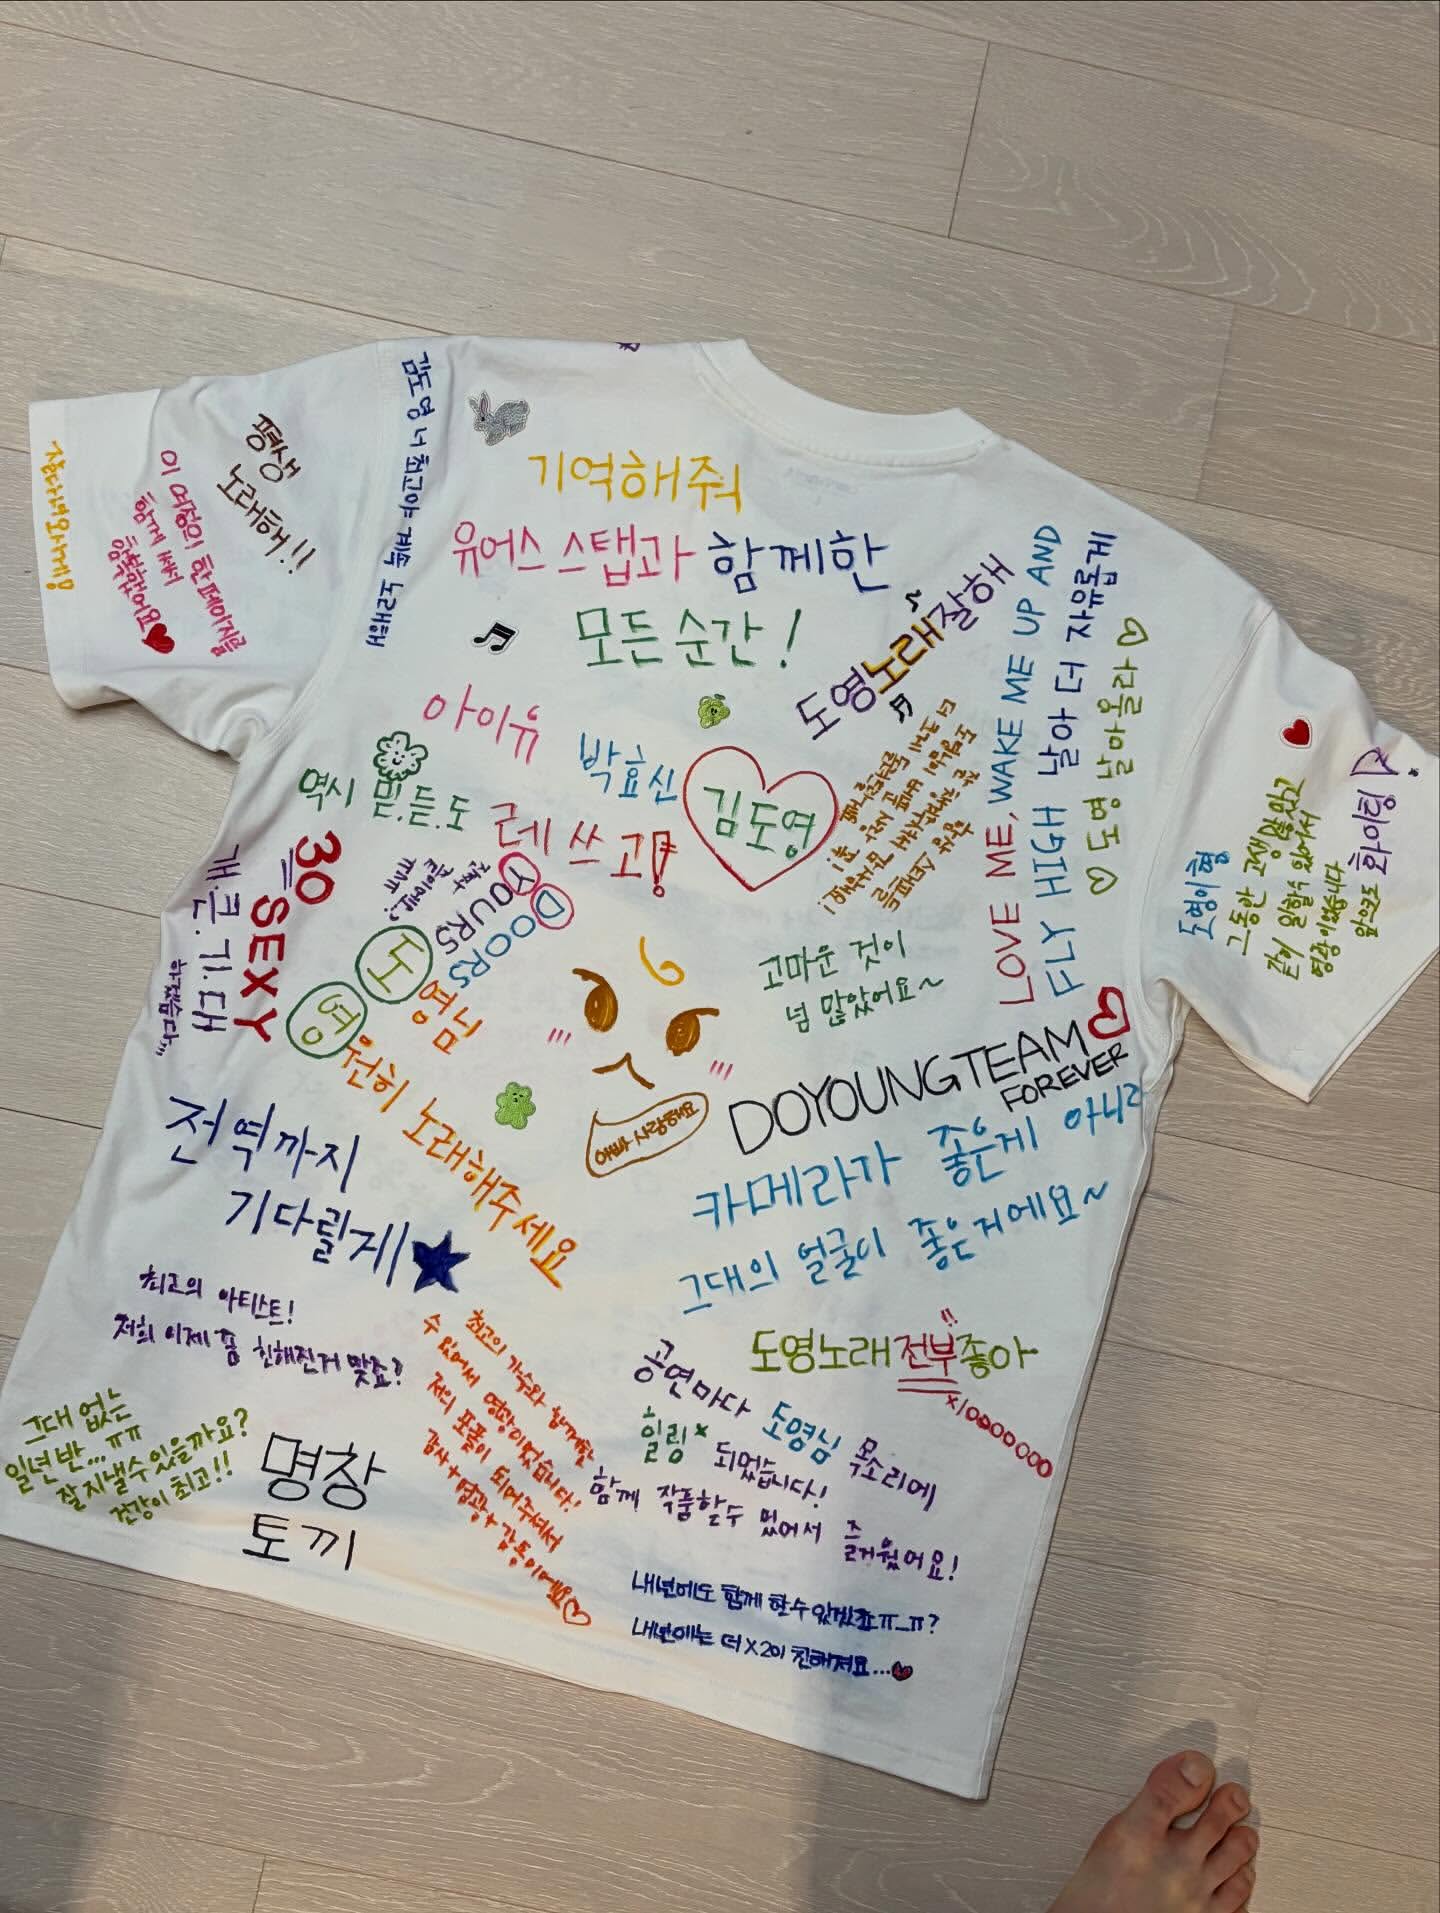 잘다녀오세용
이 여정의 한 페이지를
함께 써서
행복했어요
평생
노래해!!
김도영 너 최고야 계속 노래해
기억해줘
유어스 스탭과 함께한
모든 순간!
도영노래잘해
LOVE ME, WAKE ME UP AND
FLY HIGH 날아 더 자유롭게
♡ 도영 날아올라라 ♡
아이유
박효신
김도영
역시 믿.듣.도
레쓰고!
30
SEXY
개.큰.기.대
하겠습다...
YOURS
DOORS
도영님
영원히 노래해주세요
아빠 사랑해요
고마운 것이
넘 많았어요~
DOYOUNG TEAM
FOREVER
도영이형
그동안 고생 많았고
같이 일할수 있어서
영광이었습니다
앞으로
화이팅
전역까지
기다릴게
카메라가 좋은게 아니라
그대의 얼굴이 좋은거에요~
최고의 아티스트!
저희 이제 좀 친해진거 맞죠?
도영노래전부좋아
x10000000
최고의 가수와 함께할
수 있어서 영광이었습니다!
저의 포폴이 되어주셔서
감사+영광+감동이에요♡
공연마다 도영님 목소리에
힐링 되었습니다!
함께 작품할수 있어서 즐거웠어요!
그대 없는
일년반...ㅠㅠ
잘 지낼수있을까요?
건강이 최고!!
명창
토끼
내년에도 함께 할수있겠죠ㅠ_ㅠ?
내년에는 더 x2이 친해져요...